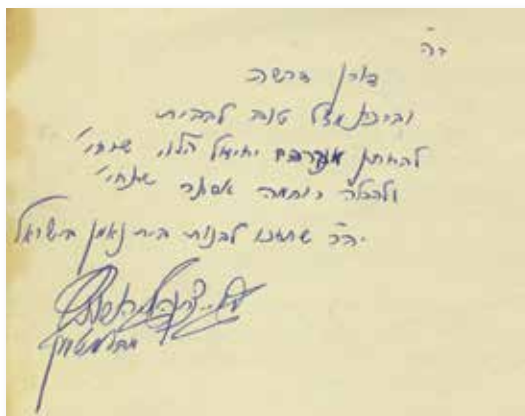 ב"ה
דורון דרשה
וברכת מזל טוב לבבית
להחתן אברהם יחיאל הלוי שיחי'
ולהכלה רוחמה אסתר שתחי'
יה"ר שתזכו לבנות בית נאמן בישראל